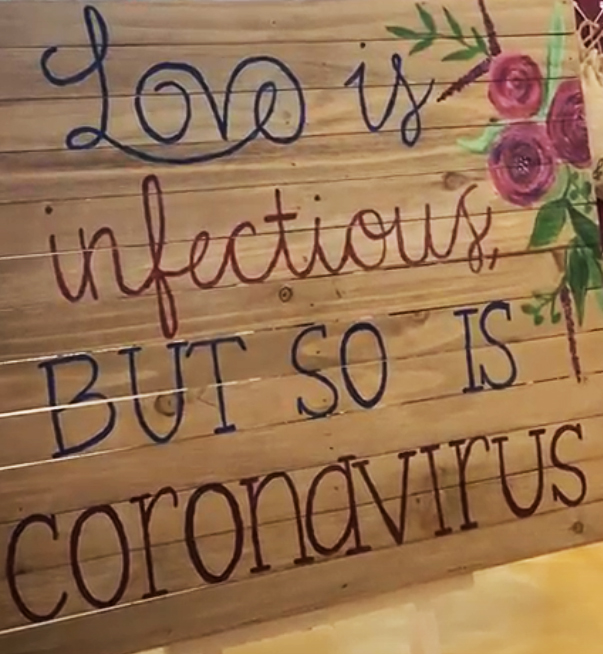 Love is
infectious,
BUT SO IS
coronavirus